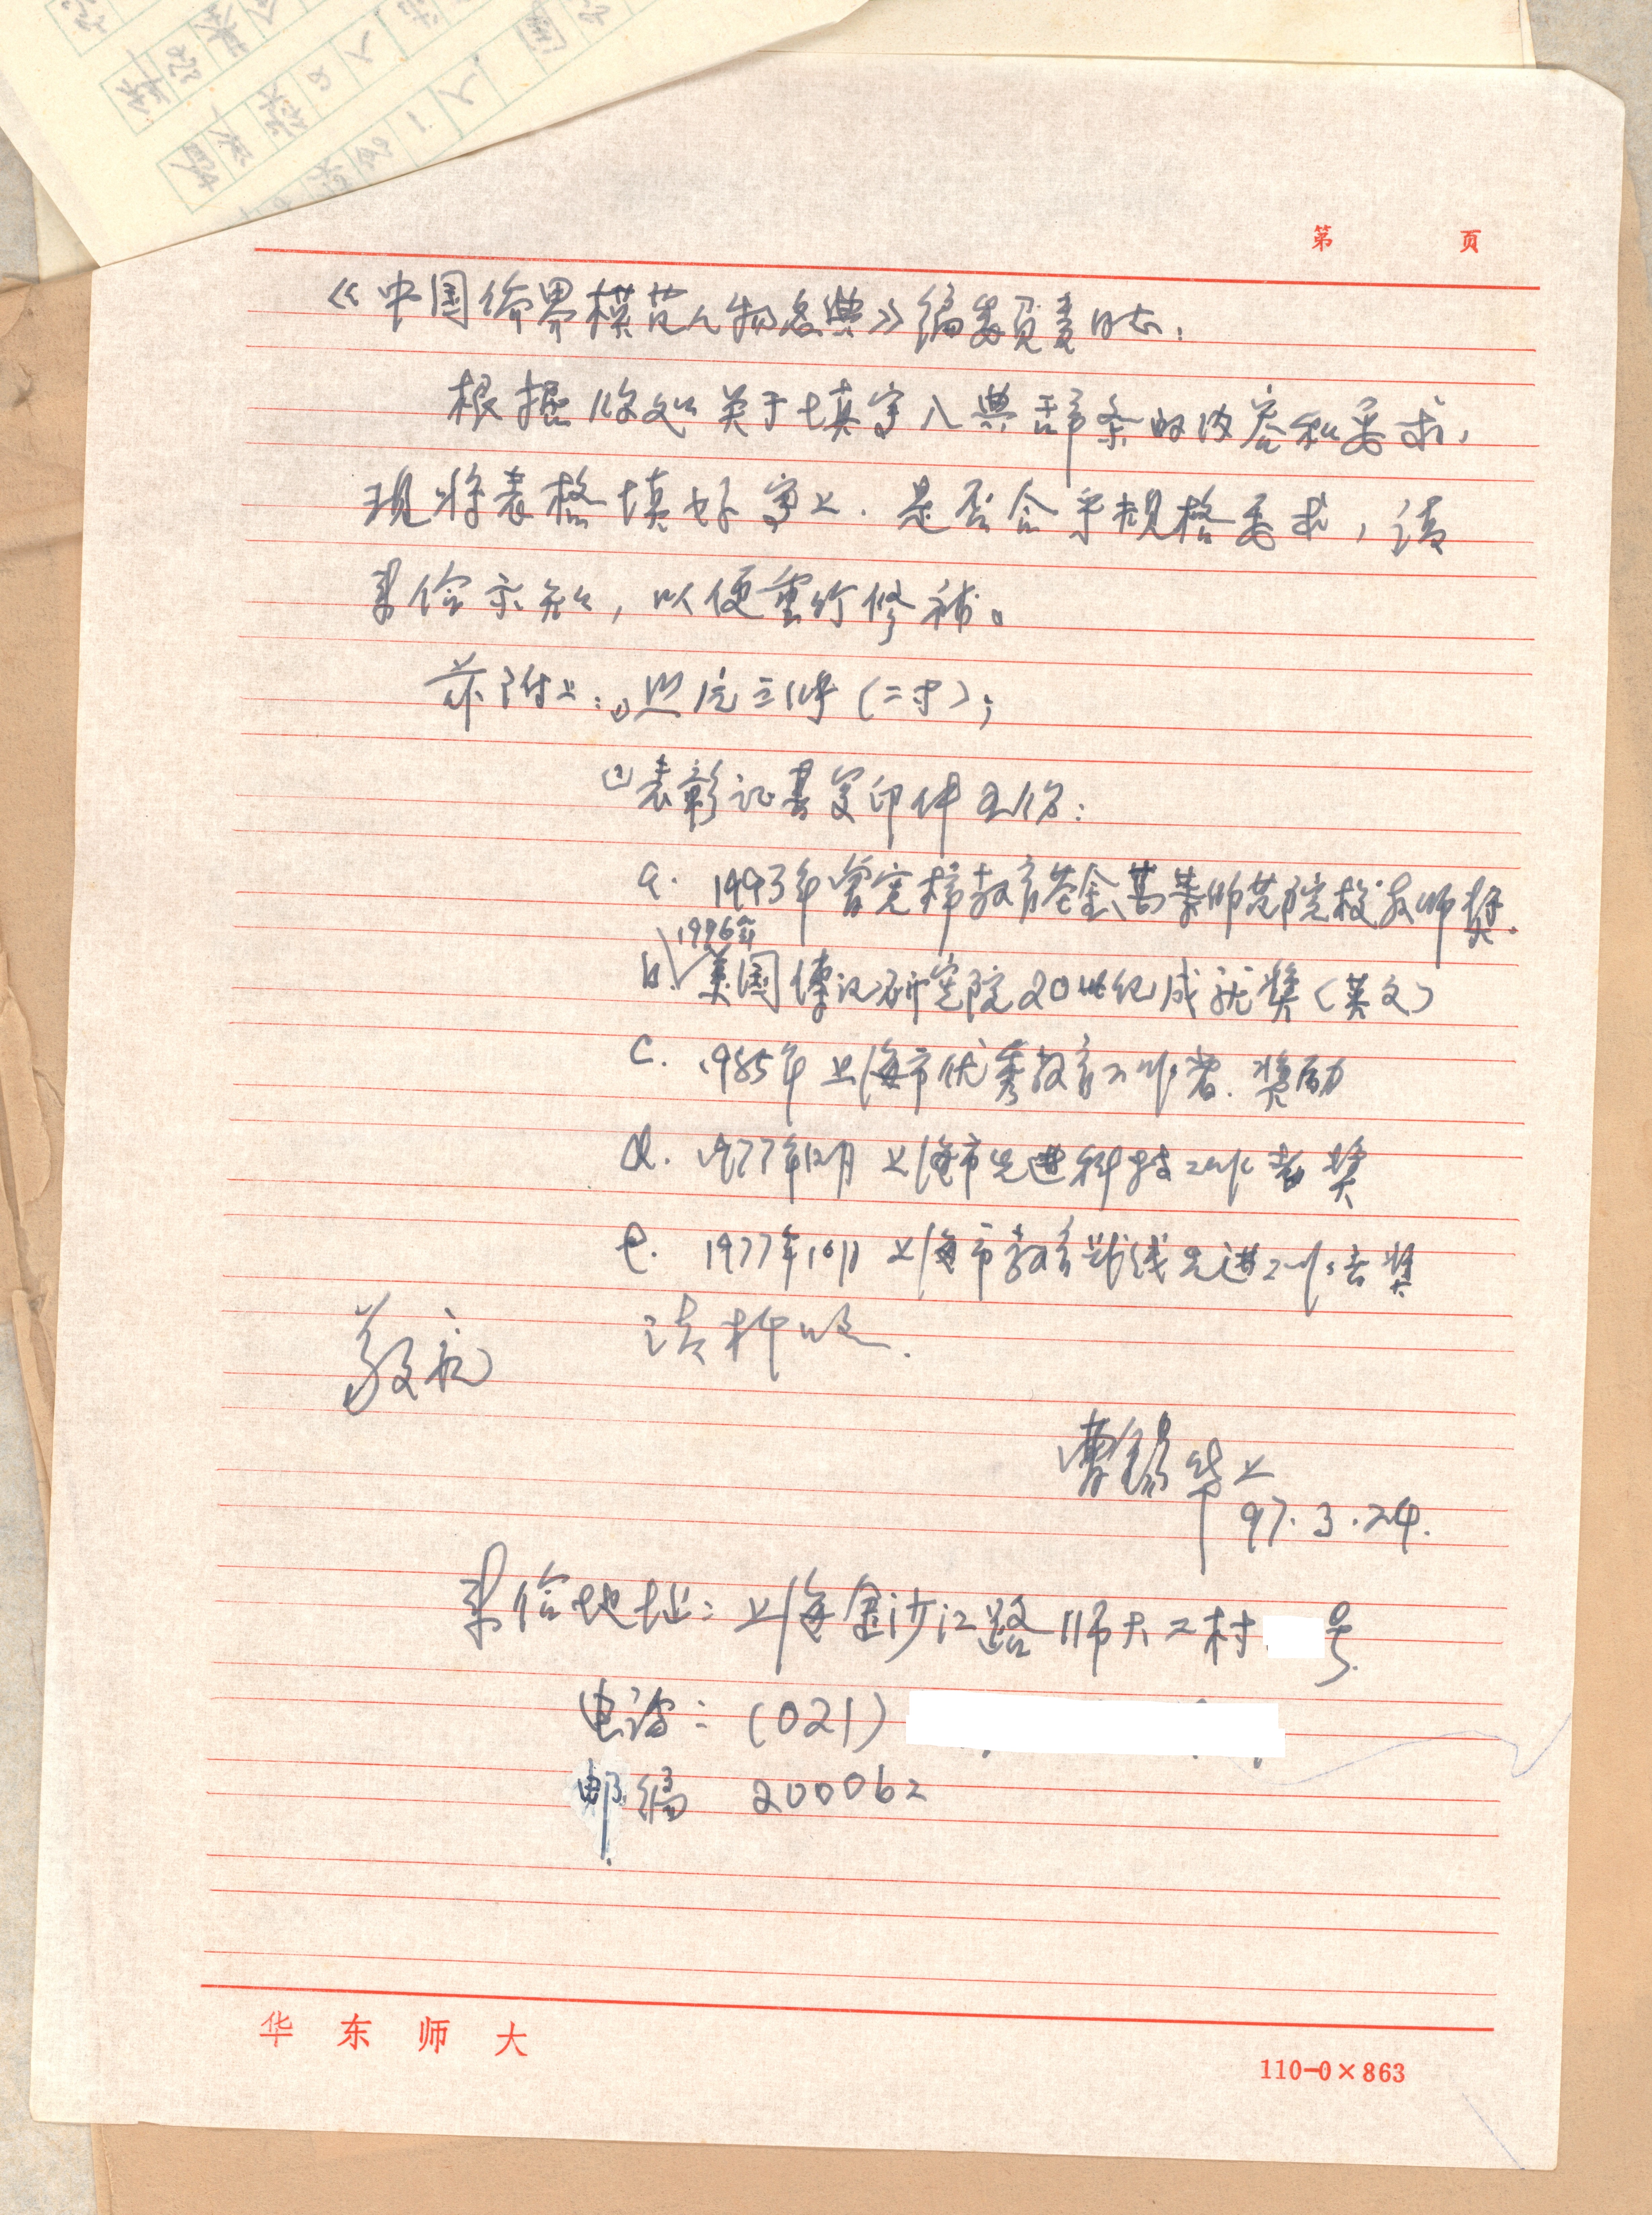 第 页
《中国各界模范人物名典》编委负责同志:
根据收文关于填写入典辞条的内容和要求,
现将表格填好寄上.是否合乎规格要求,请
来信示知,以便重行修补。
兹附上:(1)照片三张(二寸);
(2)表彰证书复印件五份:
a. 1993年曾宪梓教育基金会高等师范院校教师奖.
1996年
b. 美国传记研究院20世纪成就奖(英文)
c. 1985年上海市优秀教育工作者.奖励
d. 1977年12月 上海市先进科技工作者奖
e. 1977年10月 上海市教育战线先进工作者奖
请抄收.
敬礼
曹锡华上
97.3.24.
来信地址:上海金沙江路师大二村 号
电话:(021)
邮编 200062
华东师大
110-0×863